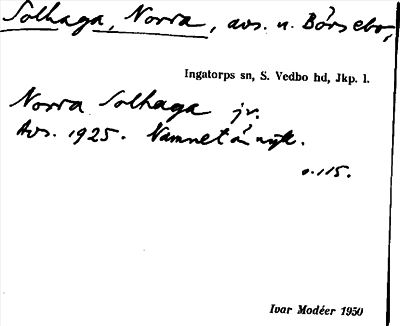 Solhaga, Norra, avs. u. Börsebo,
Ingatorps sn, S. Vedbo hd, Jkp. l.
Norra Solhaga jr.
Avs. 1925. Namnet är nytt.
s. 115.
Ivar Modéer 1950